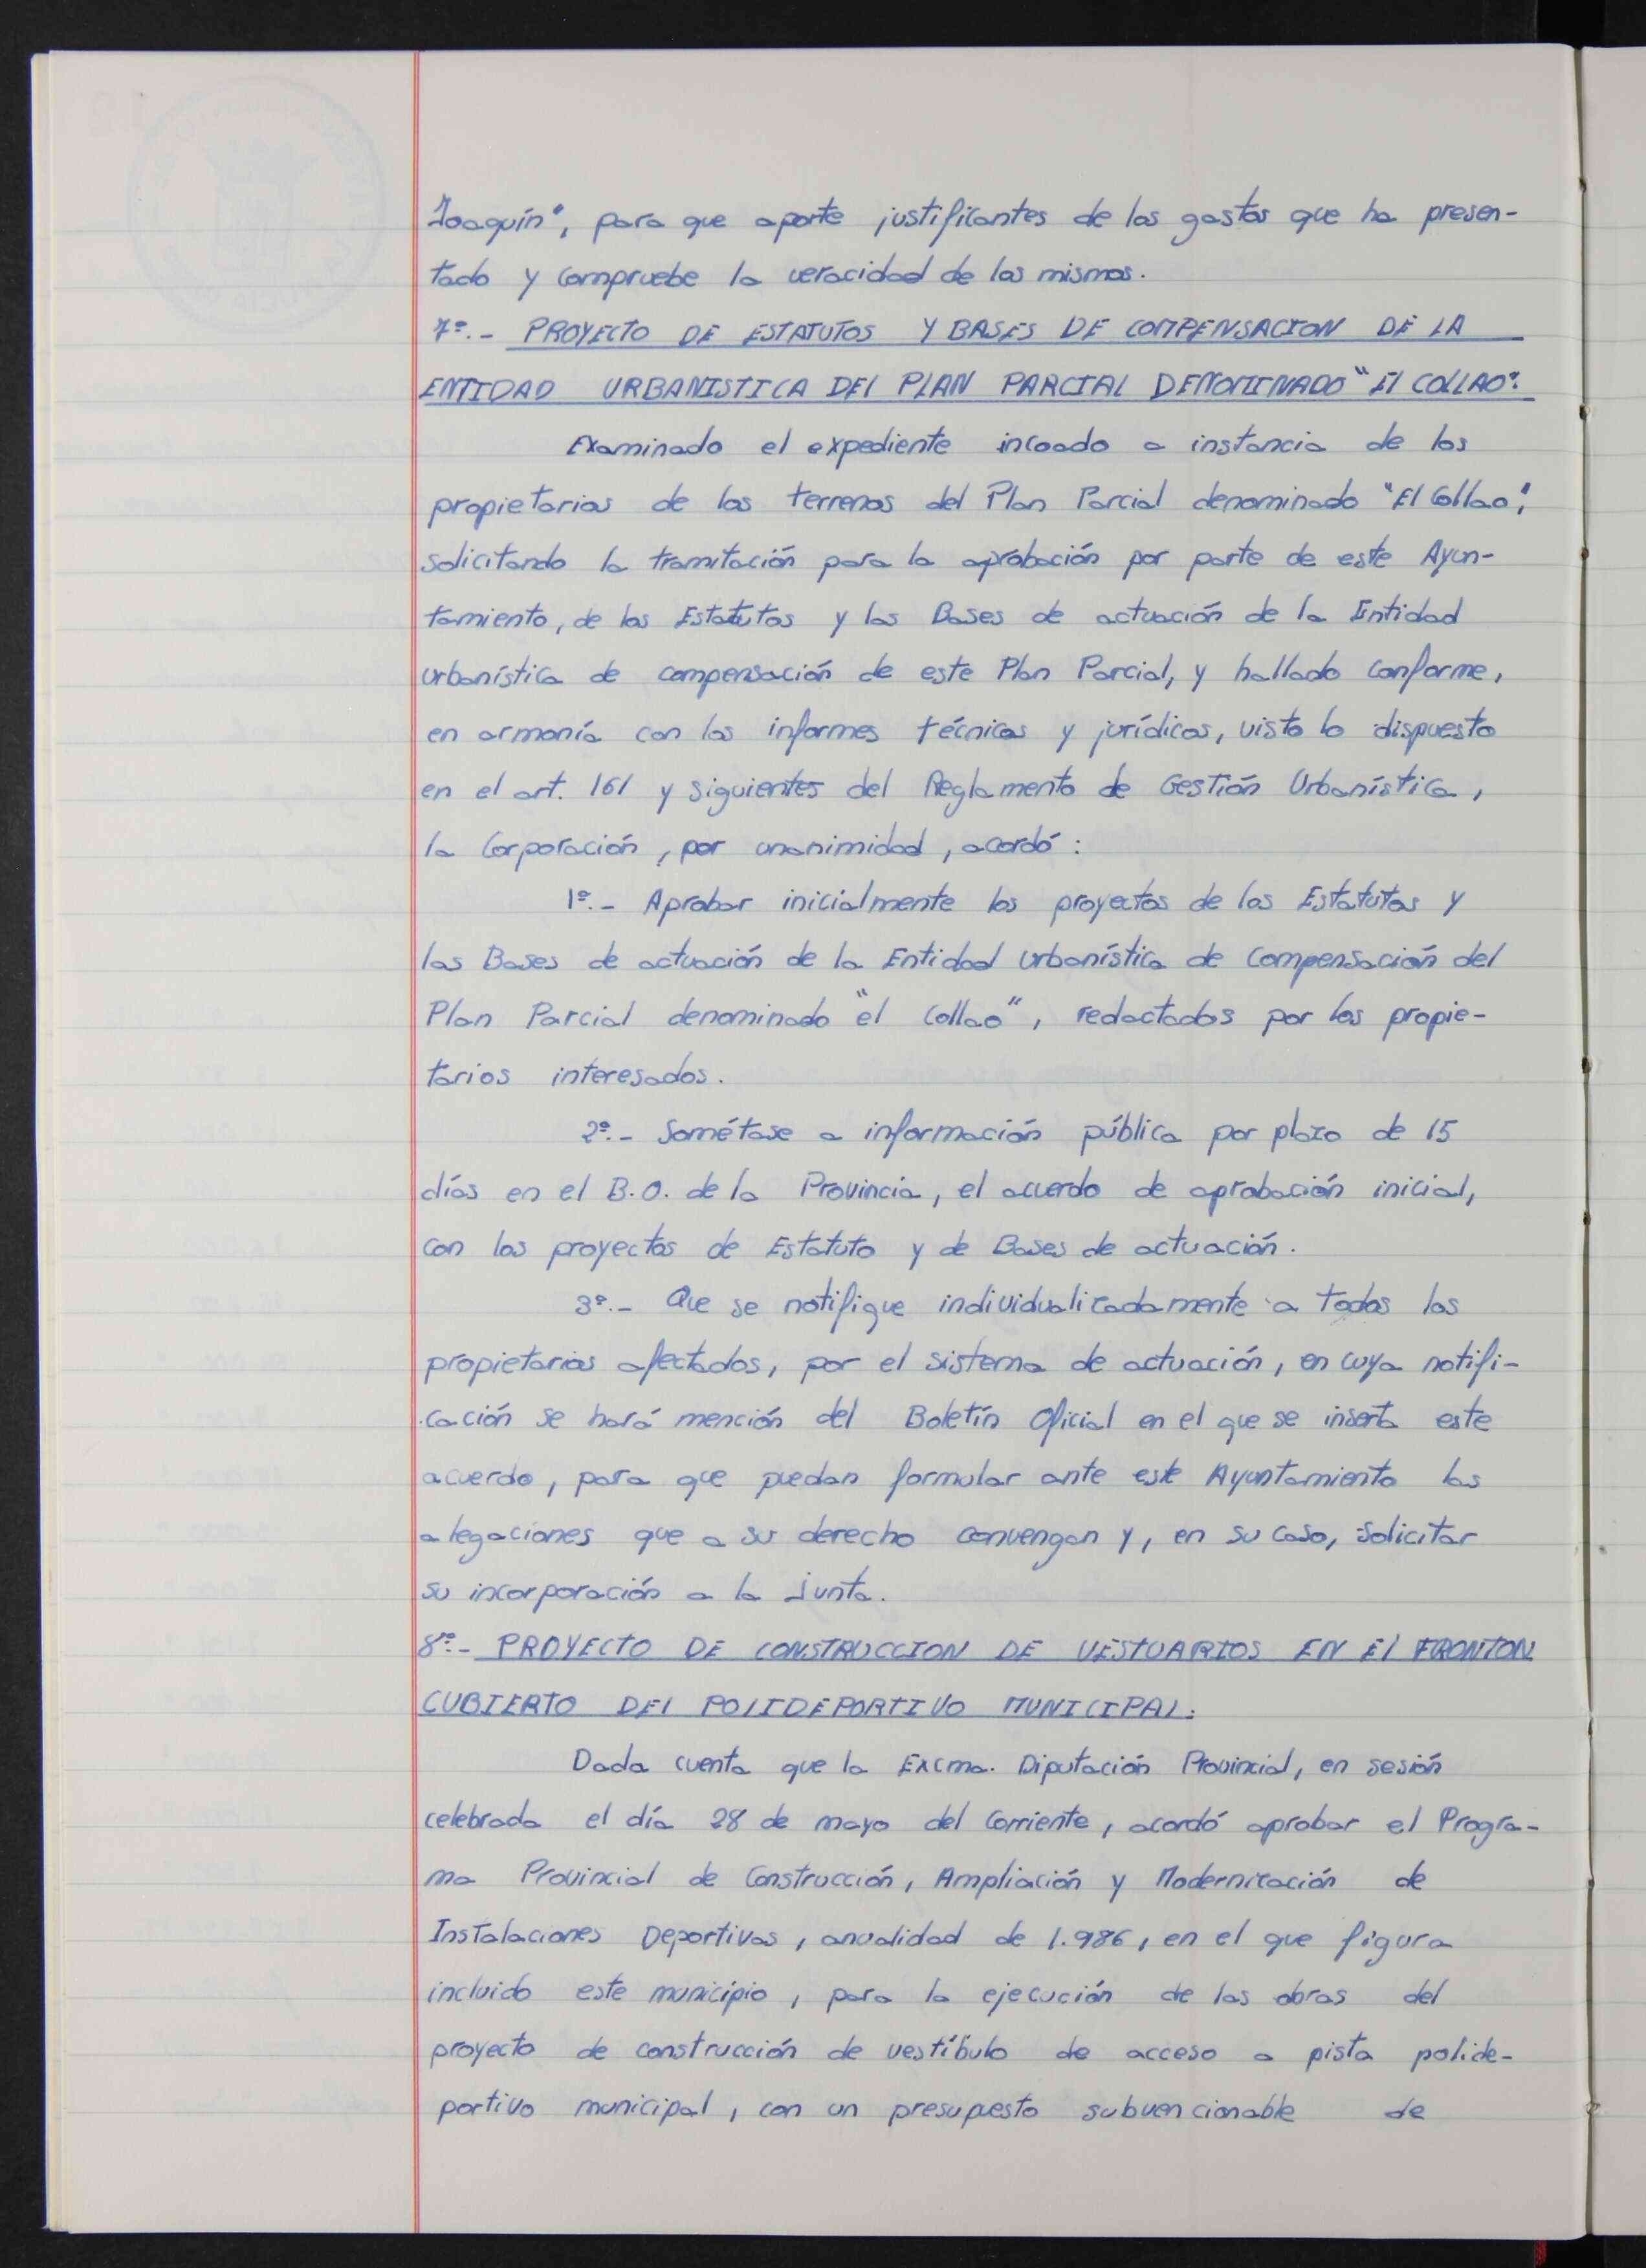 Joaquín", para que aporte justificantes de los gastos que ha presen-
tado y compruebe la veracidad de los mismos.
7º.- PROYECTO DE ESTATUTOS Y BASES DE COMPENSACION DE LA
ENTIDAD URBANISTICA DEL PLAN PARCIAL DENOMINADO "El COLLAO".
Examinado el expediente incoado a instancia de los
propietarios de los terrenos del Plan Parcial denominado "El Collao",
solicitando la tramitación para la aprobación por parte de este Ayun-
tamiento, de los Estatutos y las Bases de actuación de la Entidad
urbanística de compensación de este Plan Parcial, y hallado conforme,
en armonía con los informes técnicos y jurídicos, visto lo dispuesto
en el art. 161 y siguientes del Reglamento de Gestión Urbanística,
la Corporación, por unanimidad, acordó:
1º.- Aprobar inicialmente los proyectos de los Estatutos y
las Bases de actuación de la Entidad urbanística de compensación del
Plan Parcial denominado "el Collao", redactados por los propie-
tarios interesados.
2º.- Sométase a información pública por plazo de 15
días en el B.O. de la Provincia, el acuerdo de aprobación inicial,
con los proyectos de Estatuto y de Bases de actuación.
3º.- Que se notifique individualizadamente a todos los
propietarios afectados, por el sistema de actuación, en cuya notifi-
cación se hará mención del Boletín Oficial en el que se inserta este
acuerdo, para que puedan formular ante este Ayuntamiento las
alegaciones que a su derecho convengan y, en su caso, solicitar
su incorporación a la junta.
8º.- PROYECTO DE CONSTRUCCION DE VESTUARIOS EN El FRONTON
CUBIERTO DEL POLIDEPORTIVO MUNICIPAL.
Dada cuenta que la Excma. Diputación Provincial, en sesión
celebrada el día 28 de mayo del corriente, acordó aprobar el Progra-
ma Provincial de Construcción, Ampliación y Modernización de
Instalaciones Deportivas, anualidad de 1.986, en el que figura
incluido este municipio, para la ejecución de las obras del
proyecto de construcción de vestíbulo de acceso a pista polide-
portivo municipal, con un presupuesto subvencionable de